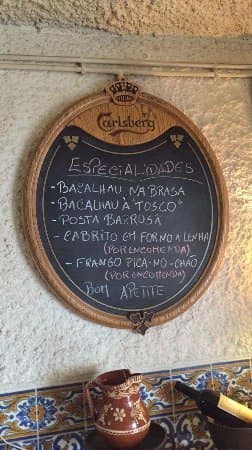 Carlsberg
ESPECIALIDADES
- BACALHAU NA BRASA
- BACALHAU À "TOSCO"
- POSTA BARROSÃ
- CABRITO EM FORNO A LENHA
(POR ENCOMENDA)
- FRANGO PICA-NO-CHÃO
(POR ENCOMENDA)
BOM APETITE